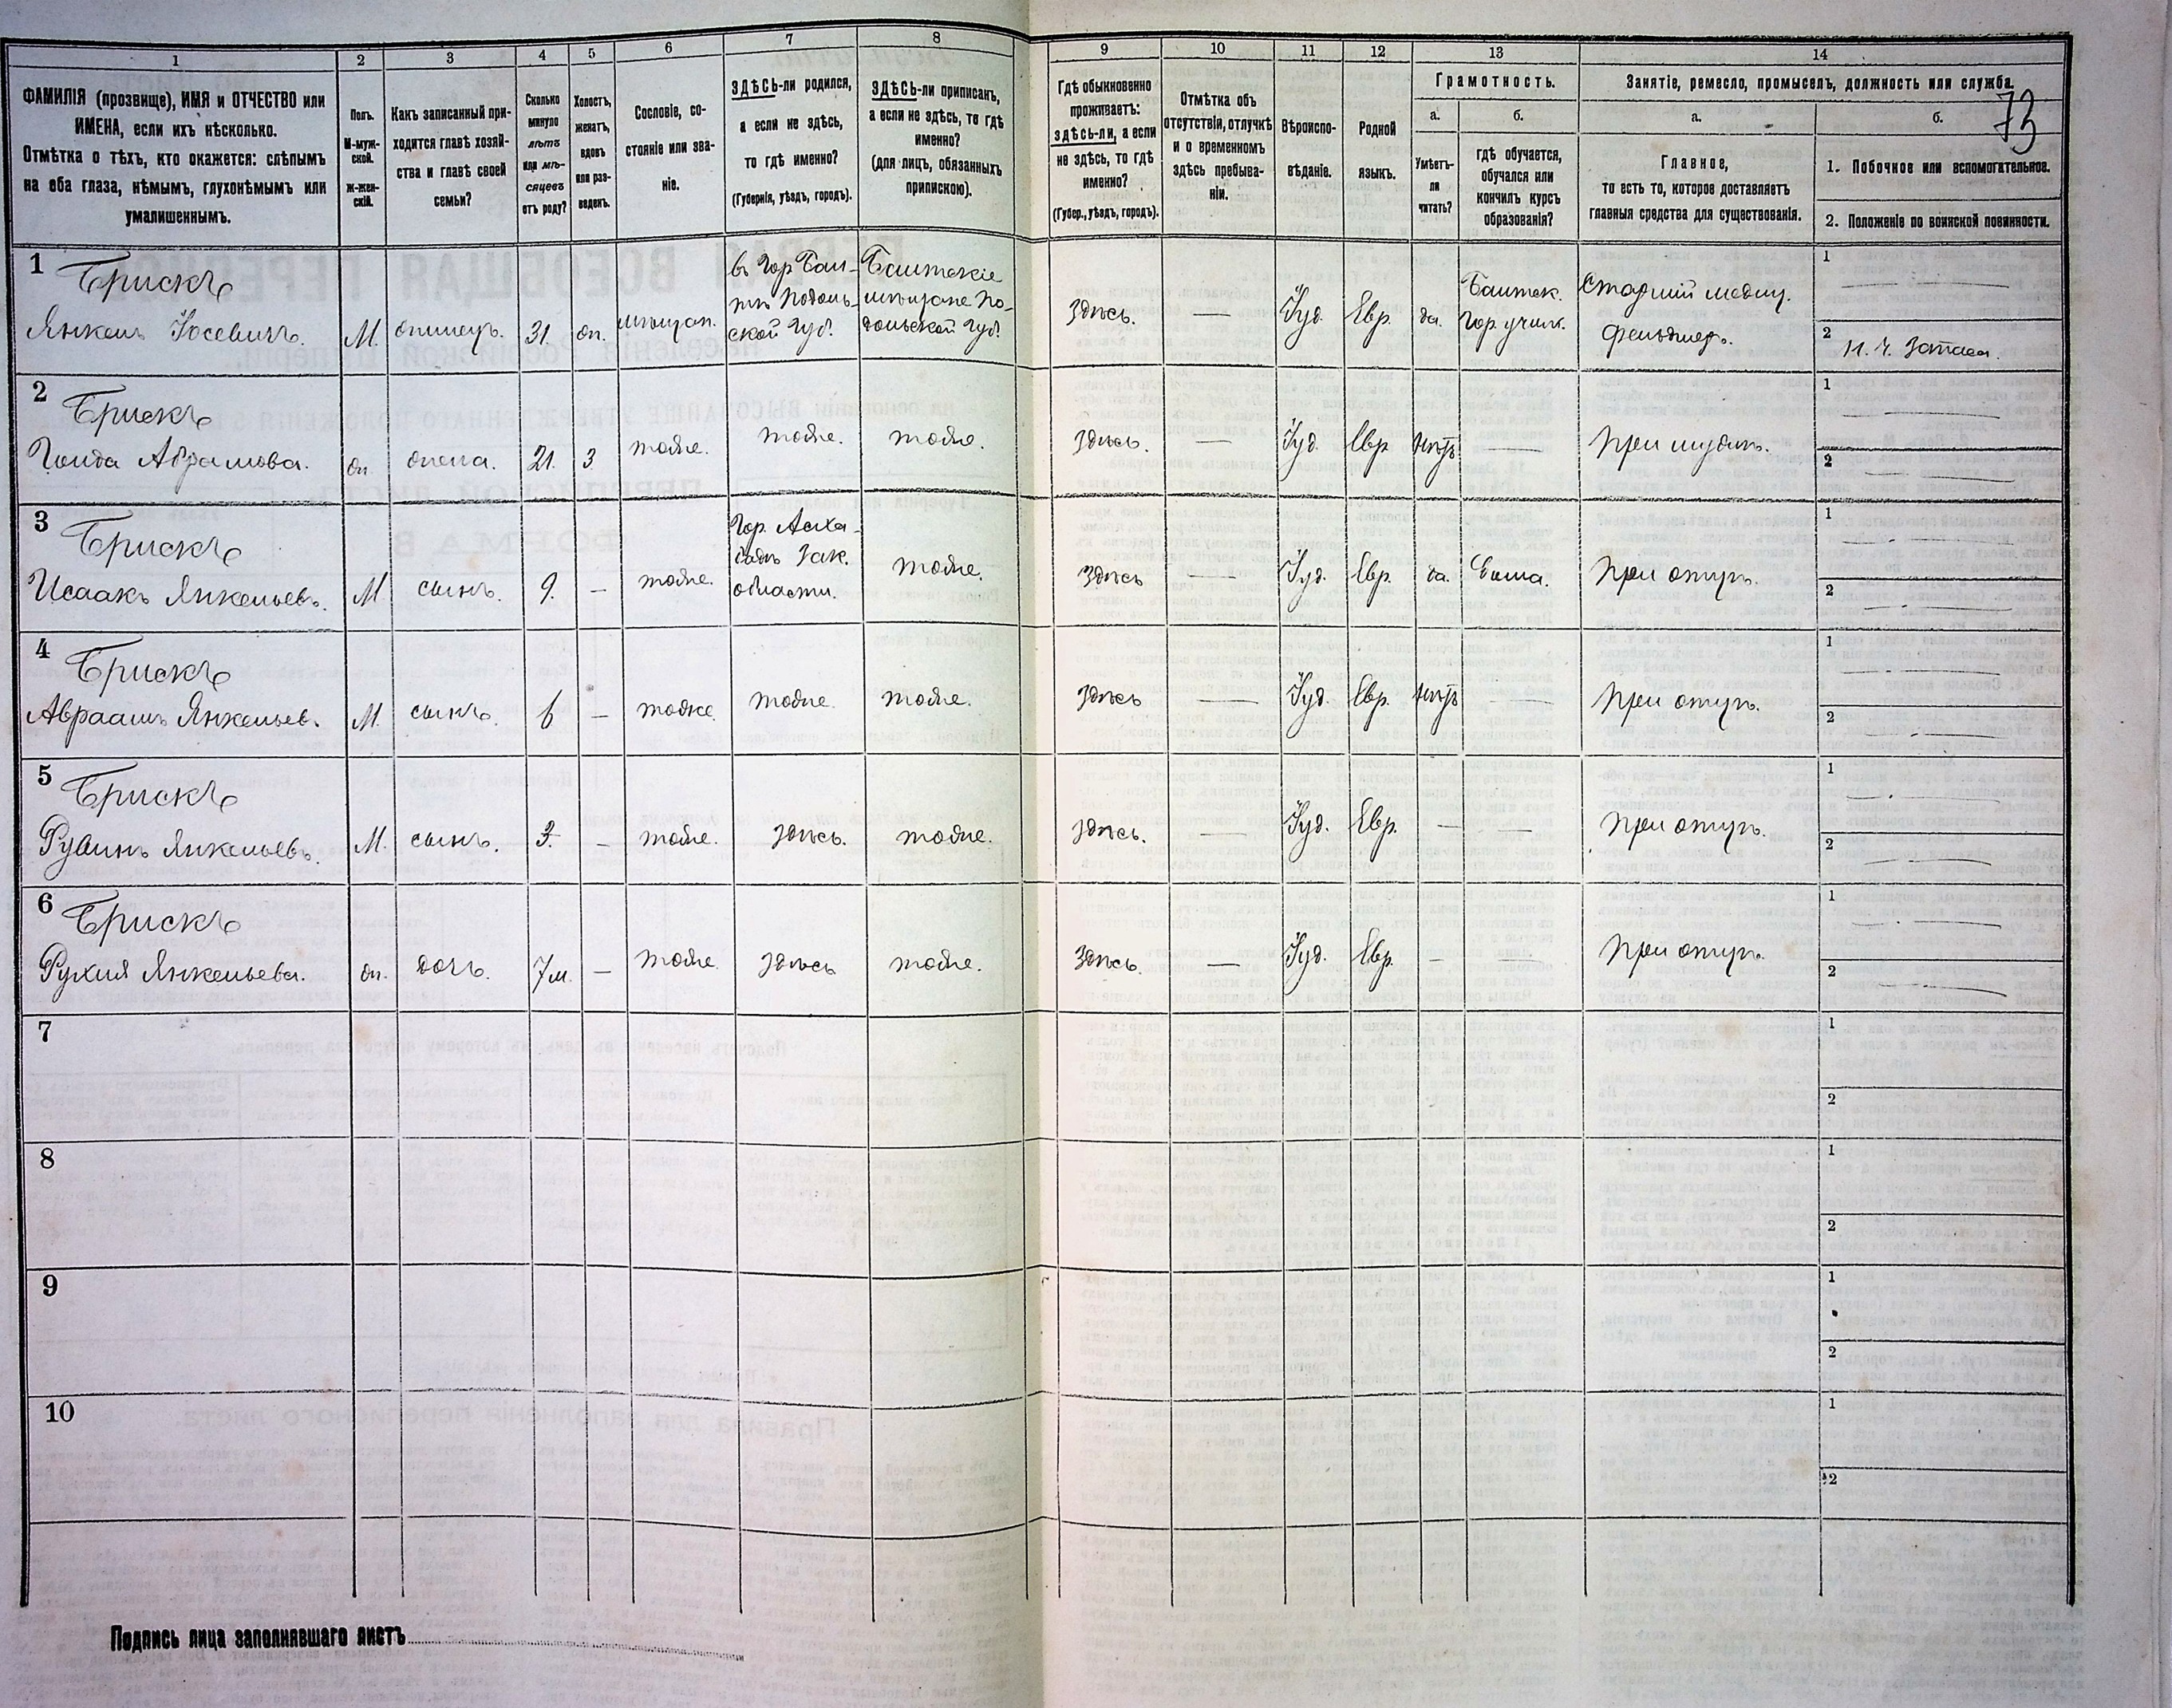 1
2
3
4
5
6
7
8
9
10
11
12
13
14
73
ФАМИЛІЯ (прозвище), ИМЯ и ОТЧЕСТВО или
ИМЕНА, если ихъ нѣсколько.
Отмѣтка о тѣхъ, кто окажется: слѣпымъ
на оба глаза, нѣмымъ, глухонѣмымъ или
умалишеннымъ.
Полъ.
М-муж-
ской.
Ж-жен-
скій.
Какъ записанный при-
ходится главѣ хозяй-
ства и главѣ своей
семьи?
Сколько
минуло
лѣтъ
или мѣ-
сяцевъ
отъ роду?
Холостъ,
женатъ,
вдовъ
или раз-
веденъ.
Сословіе, со-
стояніе или зва-
ніе.
ЗДѢСЬ-ли родился,
а если не здѣсь,
то гдѣ именно?
(Губернія, уѣздъ, городъ).
ЗДѢСЬ-ли приписанъ,
а если не здѣсь, то гдѣ
именно?
(для лицъ, обязанныхъ
припискою).
Гдѣ обыкновенно
проживаетъ:
здѣсь-ли, а если
не здѣсь, то гдѣ
именно?
(Губер., уѣздъ, городъ).
Отмѣтка объ
отсутствіи, отлучкѣ
и о временномъ
здѣсь пребыва-
ніи.
Вѣроиспо-
вѣданіе.
Родной
языкъ.
Грамотность.
а.
Умѣетъ-
ли
читать?
б.
гдѣ обучается,
обучался или
кончилъ курсъ
образованія?
Занятіе, ремесло, промыселъ, должность или служба.
а.
Главное,
то есть то, которое доставляетъ
главныя средства для существованія.
б.
1. Побочное или вспомогательное.
2. Положеніе по воинской повинности.
1
Брискъ
Янкель Іосевичъ.
М.
31.
жн.
мѣщан.
въ Гор Бал-
тѣ Подоль-
ской Губ.
Балтскіе
мѣщане По-
дольской Губ.
Здѣсь.
—
Іуд.
Евр.
да.
Балтск.
Гор. учил.
Старшій медиц.
фельдшеръ.
1
—
2
Н. Ч. Запаса.
2
Брискъ
Абрамова.
жн.
жена.
21.
З
тоже.
тоже.
тоже.
Здѣсь.
—
Іуд.
Евр
нѣтъ
—
При мужѣ.
1
—
2
—
3
Брискъ
Исаакъ Янкельевъ.
М
сынъ.
9.
—
тоже.
Гор. Асха-
бадъ Зак.
области.
тоже.
Здѣсь
—
Іуд.
Евр.
да.
Дома.
При отцѣ.
1
—
2
—
4
Брискъ
Авраамъ Янкельев.
М.
сынъ.
6
—
тоже.
тоже.
тоже.
Здѣсь
—
Іуд.
Евр.
нѣтъ
—
При отцѣ.
1
—
2
—
5
Брискъ
Рувинъ Янкельевъ.
М.
сынъ.
3.
—
тоже.
здѣсь.
тоже.
здѣсь.
—
Іуд.
Евр.
—
—
При отцѣ.
1
—
2
—
6
Брискъ
Рухля Янкельева.
жн.
дочь.
7 м.
—
тоже.
здѣсь
тоже.
Здѣсь.
—
Іуд.
Евр.
—
—
При отцѣ.
1
—
2
—
7
1
2
8
1
2
9
1
2
10
1
2
Подпись лица заполнявшаго листъ